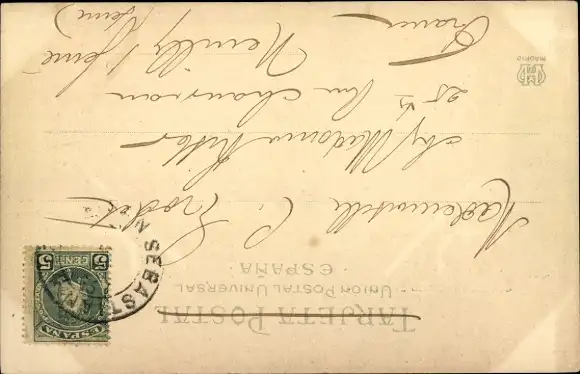 TARJETA POSTAL
UNION POSTAL UNIVERSAL
ESPAÑA
N SEBAST
ESPAÑA
5 CENT 5
Mademoiselle C.
chez Madame
25 bis Rue chauveau
Neuilly s/Seine
(Seine)
France
MADRID